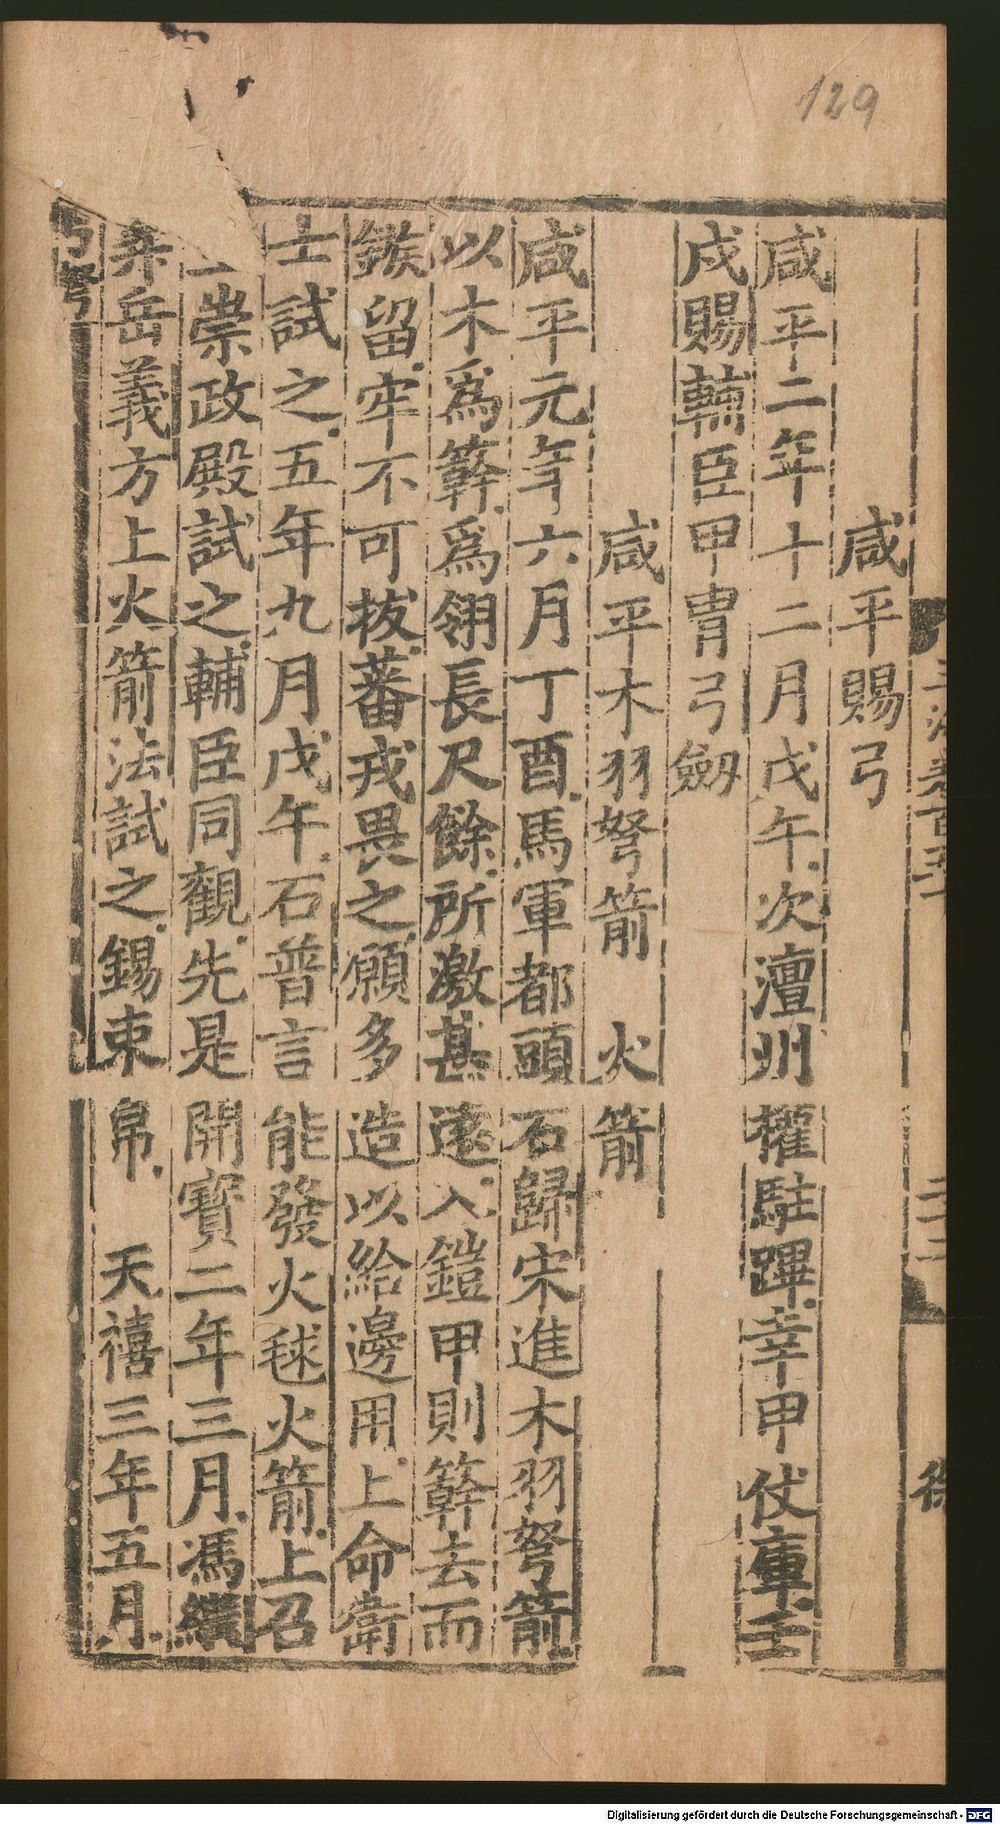 129
咸平賜弓
咸平二年十二月戊午次澶州權駐蹕幸甲仗庫壬
戌賜輔臣甲冑弓劔
咸平木羽弩箭 火箭
咸平元年六月丁酉馬軍都頭石歸宋進木羽弩箭
以木爲簳爲翎長尺餘所激甚遠入鎧甲則簳去而
鏃留牢不可拔蕃戎畏之願多造以給邊用上命衛
士試之五年九月戊午石普言能發火毬火箭上召
崇政殿試之輔臣同觀先是開寶二年三月馮繼
昇岳義方上火箭法試之錫束帛 天禧三年五月
弓弩
Digitalisierung gefördert durch die Deutsche Forschungsgemeinschaft - DFG